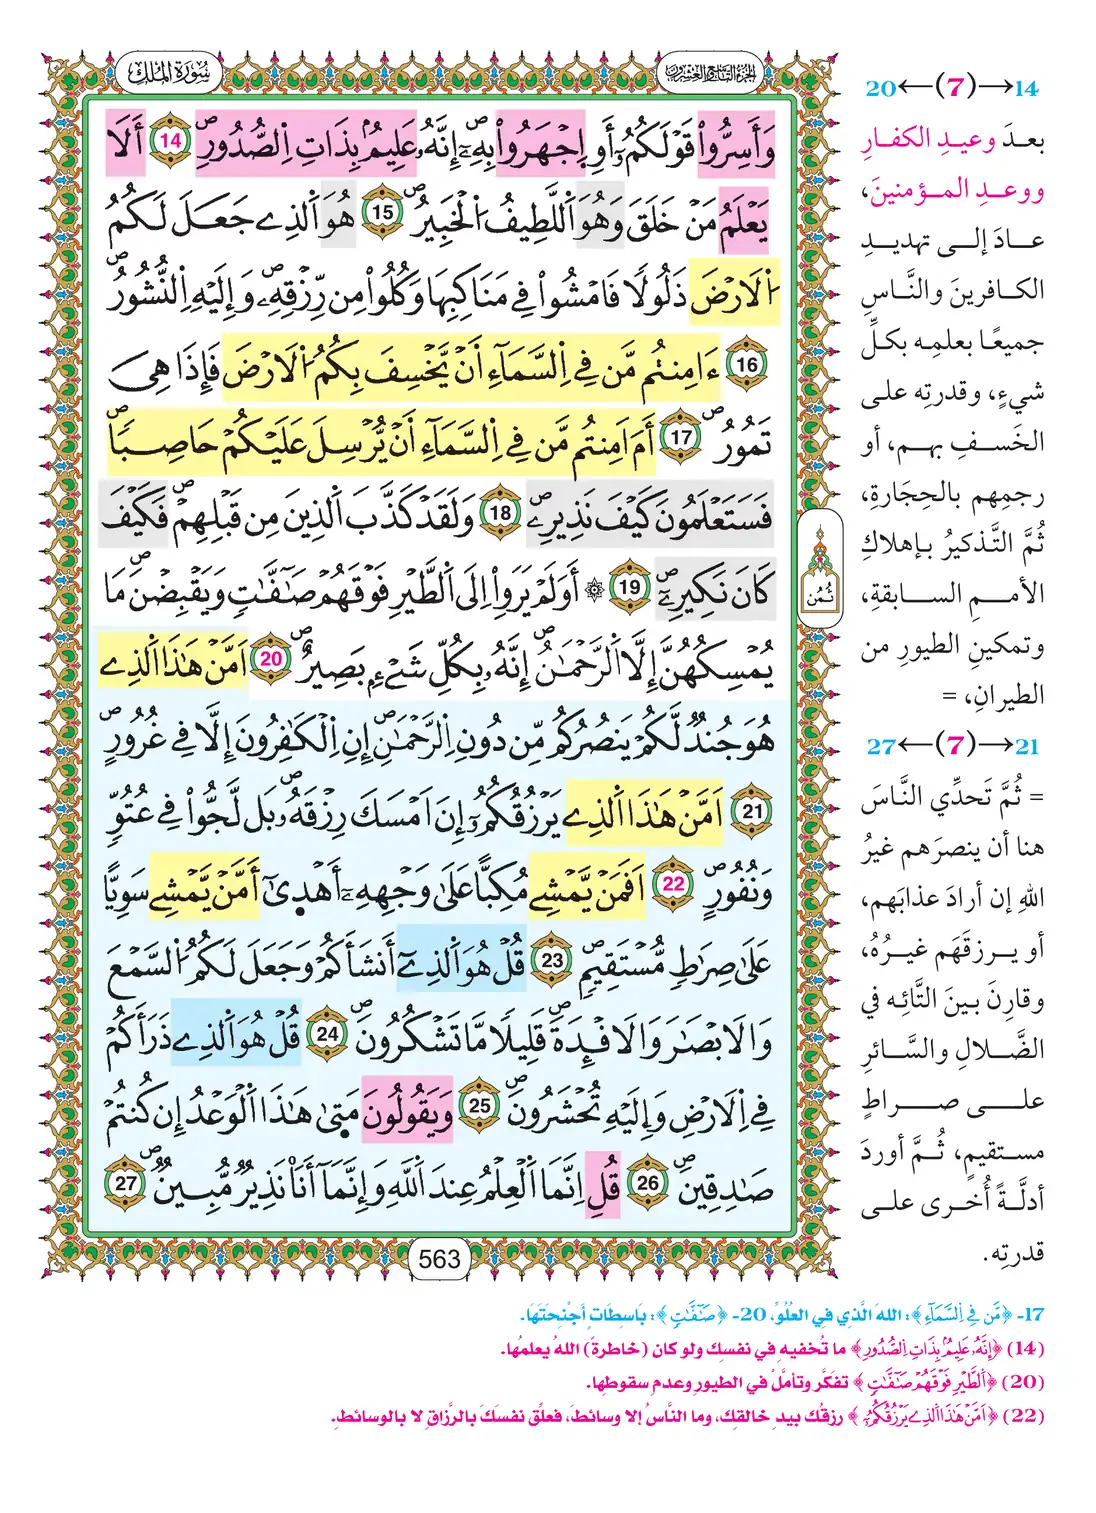 سُورَةُ المُلْكِ
الجُزْءُ التَّاسِعُ وَالعِشْرُونَ
وَأَسِرُّواْ قَوْلَكُمُۥٓ أَوِ اِ۪جْهَرُواْ بِهِۦٓۖ إِنَّهُۥ عَلِيمُۢ بِذَاتِ اِ۬لصُّدُورِۖ 14 أَلَا
يَعْلَمُ مَنْ خَلَقَ وَهُوَ اَ۬للَّطِيفُ اُ۬لْخَبِيرُۖ 15 هُوَ اَ۬لذِے جَعَلَ لَكُمُ
اُ۬لَارْضَ ذَلُولاٗ فَامْشُواْ فِے مَنَاكِبِهَا وَكُلُواْ مِن رِّزْقِهِۦۖ وَإِلَيْهِ اِ۬لنُّشُورُۖ
16 ءَآمِنتُم مَّن فِے اِ۬لسَّمَآءِ اَنْ يَّخْسِفَ بِكُمُ اُ۬لَارْضَ فَإِذَا هِىَ
تَمُورُۖ 17 أَمَ اَمِنتُم مَّن فِے اِ۬لسَّمَآءِ اَنْ يُّرْسِلَ عَلَيْكُمْ حَاصِباٗۖ
فَسَتَعْلَمُونَ كَيْفَ نَذِيرِۦۖ 18 وَلَقَدْ كَذَّبَ اَ۬لذِينَ مِن قَبْلِهِمْۖ فَكَيْفَ
كَانَ نَكِيرِۦٓۖ 19 ۞ أَوَلَمْ يَرَوِاْ اِلَى اَ۬لطَّيْرِ فَوْقَهُمْ صَٰٓفَّٰتٖ وَيَقْبِضْنَۖ مَا
يُمْسِكُهُنَّ إِلَّا اَ۬لرَّحْمَٰنُۖ إِنَّهُۥ بِكُلِّ شَےْءِۢ بَصِيرٌۖ 20 اَمَّنْ هَٰذَا اَ۬لذِے
هُوَ جُندٞ لَّكُمْ يَنصُرُكُم مِّن دُونِ اِ۬لرَّحْمَٰنِۖ إِنِ اِ۬لْكَٰفِرُونَ إِلَّا فِے غُرُورٍۖ
21 اَمَّنْ هَٰذَا اَ۬لذِے يَرْزُقُكُمُۥٓ إِنَ اَمْسَكَ رِزْقَهُۥۖ بَل لَّجُّواْ فِے عُتُوّٖ
وَنُفُورٍۖ 22 اَفَمَنْ يَّمْشِے مُكِبّاً عَلَىٰ وَجْهِهِۦٓ أَهْد۪ىٰٓ أَمَّنْ يَّمْشِے سَوِيّاً
عَلَىٰ صِرَٰطٖ مُّسْتَقِيمٖۖ 23 قُلْ هُوَ اَ۬لذِےٓ أَنشَأَكُمْ وَجَعَلَ لَكُمُ اُ۬لسَّمْعَ
وَالَابْصَٰرَ وَالَافْـِٕدَةَۖ قَلِيلاٗ مَّا تَشْكُرُونَۖ 24 قُلْ هُوَ اَ۬لذِے ذَرَأَكُمْ
فِے اِ۬لَارْضِ وَإِلَيْهِ تُحْشَرُونَۖ 25 وَيَقُولُونَ مَتَىٰ هَٰذَا اَ۬لْوَعْدُ إِن كُنتُمْ
صَٰدِقِينَۖ 26 قُلِ اِنَّمَا اَ۬لْعِلْمُ عِندَ اَ۬للَّهِ وَإِنَّمَآ أَنَا۠ نَذِيرٞ مُّبِينٞۖ 27
ثُمُن
563
14→(7)←20
بعدَ وعيدِ الكفارِ
ووعدِ المؤمنينَ،
عادَ إلى تهديدِ
الكافرينَ والنَّاسِ
جميعًا بعلمِه بكلِّ
شيءٍ، وقدرتِه على
الخَسفِ بهم، أو
رجمِهم بالحِجَارةِ،
ثُمَّ التَّذكيرُ بإهلاكِ
الأممِ السابقةِ،
وتمكينِ الطيورِ من
الطيرانِ، =
21→(7)←27
= ثُمَّ تَحدِّي النَّاسَ
هنا أن ينصرَهم غيرُ
اللهِ إن أرادَ عذابَهم،
أو يرزقَهَم غيرُهُ،
وقارنَ بينَ التَّائِه في
الضَّلالِ والسَّائرِ
على صراطٍ
مستقيمٍ، ثُمَّ أوردَ
أدلَّةً أُخرى على
قدرتِه.
17- ﴿مَّن فِے اِ۬لسَّمَآءِ﴾: اللهَ الَّذِي في العُلُوِّ، 20- ﴿صَٰٓفَّٰتٖ﴾: بَاسِطَاتٍ أجْنحَتَهَا.
(14) ﴿إِنَّهُۥ عَلِيمُۢ بِذَاتِ اِ۬لصُّدُورِ﴾ ما تُخفيهِ في نفسِك ولو كان (خاطرةً) اللهُ يعلمُها.
(20) ﴿اَ۬لطَّيْرِ فَوْقَهُمْ صَٰٓفَّٰتٖ﴾ تفكَّر وتأمَّلْ في الطيورِ وعدمِ سقوطِها.
(22) ﴿اَمَّنْ هَٰذَا اَ۬لذِے يَرْزُقُكُمُۥٓ﴾ رزقُك بيدِ خالقِك، وما النَّاسُ إلا وسائطَ، فعلِّق نفسَكَ بالرَّزاقِ لا بالوسائطِ.